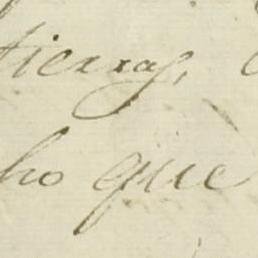 tierras,
ho que